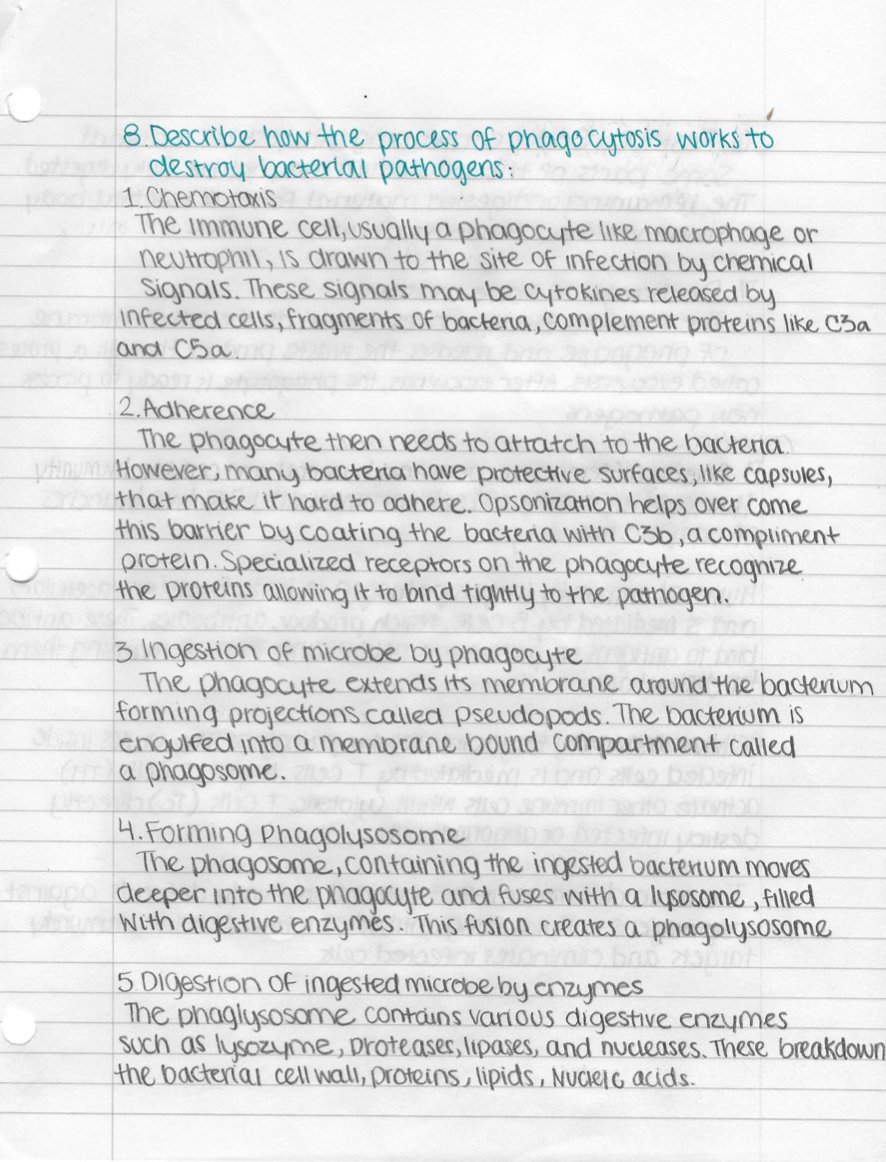 8. Describe how the process of phagocytosis works to
destroy bacterial pathogens:
1. Chemotaxis
The immune cell, usually a phagocyte like macrophage or
neutrophil, is drawn to the site of infection by chemical
signals. These signals may be cytokines released by
infected cells, fragments of bacteria, complement proteins like C3a
and C5a.
2. Adherence
The phagocyte then needs to attatch to the bacteria.
However, many bacteria have protective surfaces, like capsules,
that make it hard to adhere. Opsonization helps over come
this barrier by coating the bacteria with C3b, a compliment
protein. Specialized receptors on the phagocyte recognize
the proteins allowing it to bind tightly to the pathogen.
3 Ingestion of microbe by phagocyte
The phagocyte extends its membrane around the bacterium
forming projections called pseudopods. The bacterium is
engulfed into a membrane bound compartment called
a phagosome.
4. Forming Phagolysosome
The phagosome, containing the ingested bacterium moves
deeper into the phagocyte and fuses with a lysosome, filled
with digestive enzymes. This fusion creates a phagolysosome
5 Digestion of ingested microbe by enzymes
The phaglysosome contains various digestive enzymes
such as lysozyme, proteases, lipases, and nucleases. These breakdown
the bacterial cell wall, proteins, lipids, Nucleic acids.